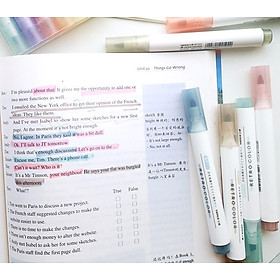 Unit 30 Things Go Wrong
I'm pleased about that. It gives me the opportunity to add one or
two more functions as well.
I emailed the New York office to get their opinion of the French
idea. They like them.
And I've met Isabel to show her some sketches for a new first
page. At the moment it's not bright enough.
No, I agree. In Paris they said it was a bit dull.
Ok. I'll talk to JT tomorrow.
I think that's enough discussion. Let's go on to the
Excuse me, Tom. There's a phone call.
Can't it wait? Who is it?
It's a Mr Tomson, your neighbour. He says your flat was burgled
this afternoon.
What!?
True False
Tom went to Paris to discuss a new project.
The French staff suggested changes to make the
website easier to use.
There is no time to make the changes.
There isn't enough money to alter the website.
Tom met Isabel to ask her for some sketches.
The Paris staff find the first page dull.
METROCOLOR